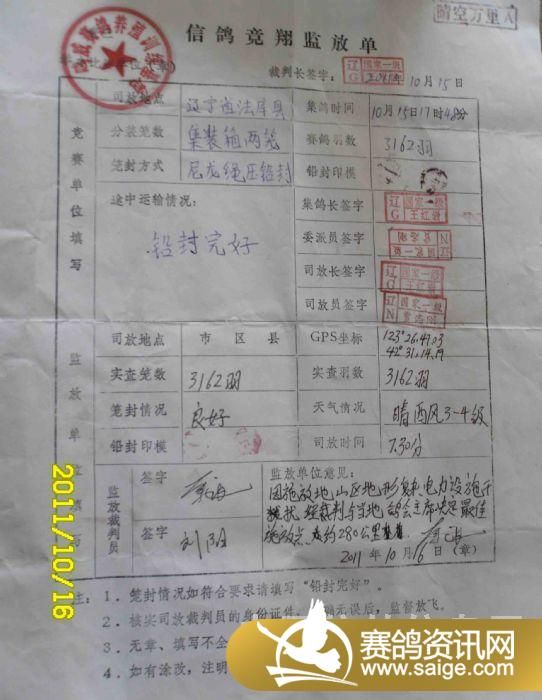 晴空万里A
信鸽竞翔监放单
裁判长签字: 辽 国家一级 G 2011年10月15日
竞赛单位填写
司放地点 辽宁省法库县 集鸽时间 10月15日17时48分
分装笼数 集装箱两笼 赛鸽羽数 3162羽
笼封方式 尼龙绳压铅封 铅封印模
途中运输情况: 集鸽长签字 辽 国家一级 G
铅封完好 委派员签字
司放长签字 辽 国家一级 G
司放员签字 辽 国家一级 N
监放单位填写
司放地点 市 区 县 GPS坐标 123°26.47.03
42°31.14.19
实查笼数 3162羽 实查羽数 3162羽
笼封情况 良好 天气情况 晴西风3-4级
铅封印模 司放时间 7.30分
监放裁判员
签字
签字 刘阳
监放单位意见:
因施放地山区地形复杂电力设施干
扰,经裁判与当地鸽会主席决定最佳
施放点,为约280公里
2011年10月16日(章)
注: 1.笼封情况如符合要求请填写"铅封完好"。
2.核实司放裁判员的身份证件,确无误后,监督放飞。
3.无章、填写不全
4.如有涂改,注明
2011/10/16
赛鸽资讯网
www.saige.com